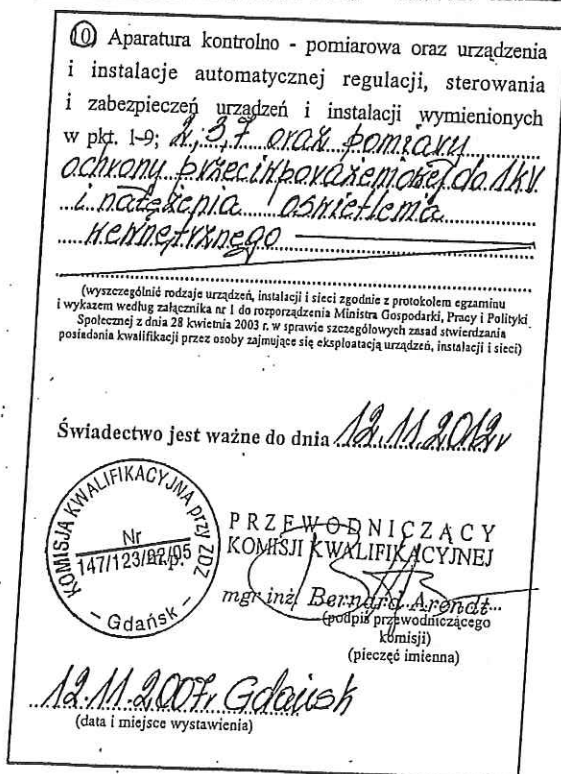 10 Aparatura kontrolno - pomiarowa oraz urządzenia
i instalacje automatycznej regulacji, sterowania
i zabezpieczeń urządzeń i instalacji wymienionych
w pkt. 1-9; 2,3,7 oraz pomiary
ochrony przeciwporażeniowej do 1kV
i natężenia oświetlenia
wewnętrznego
(wyszczególnić rodzaje urządzeń, instalacji i sieci zgodnie z protokołem egzaminu
i wykazem według załącznika nr 1 do rozporządzenia Ministra Gospodarki, Pracy i Polityki
Społecznej z dnia 28 kwietnia 2003 r. w sprawie szczegółowych zasad stwierdzania
posiadania kwalifikacji przez osoby zajmujące się eksploatacją urządzeń, instalacji i sieci)
Świadectwo jest ważne do dnia 12.11.2012r
KOMISJA KWALIFIKACYJNA przy ZDZ
Nr
147/123/
- Gdańsk -
PRZEWODNICZĄCY
KOMISJI KWALIFIKACYJNEJ
mgr inż. Bernard Arendt
(podpis przewodniczącego
komisji)
(pieczęć imienna)
12.11.2007r Gdańsk
(data i miejsce wystawienia)